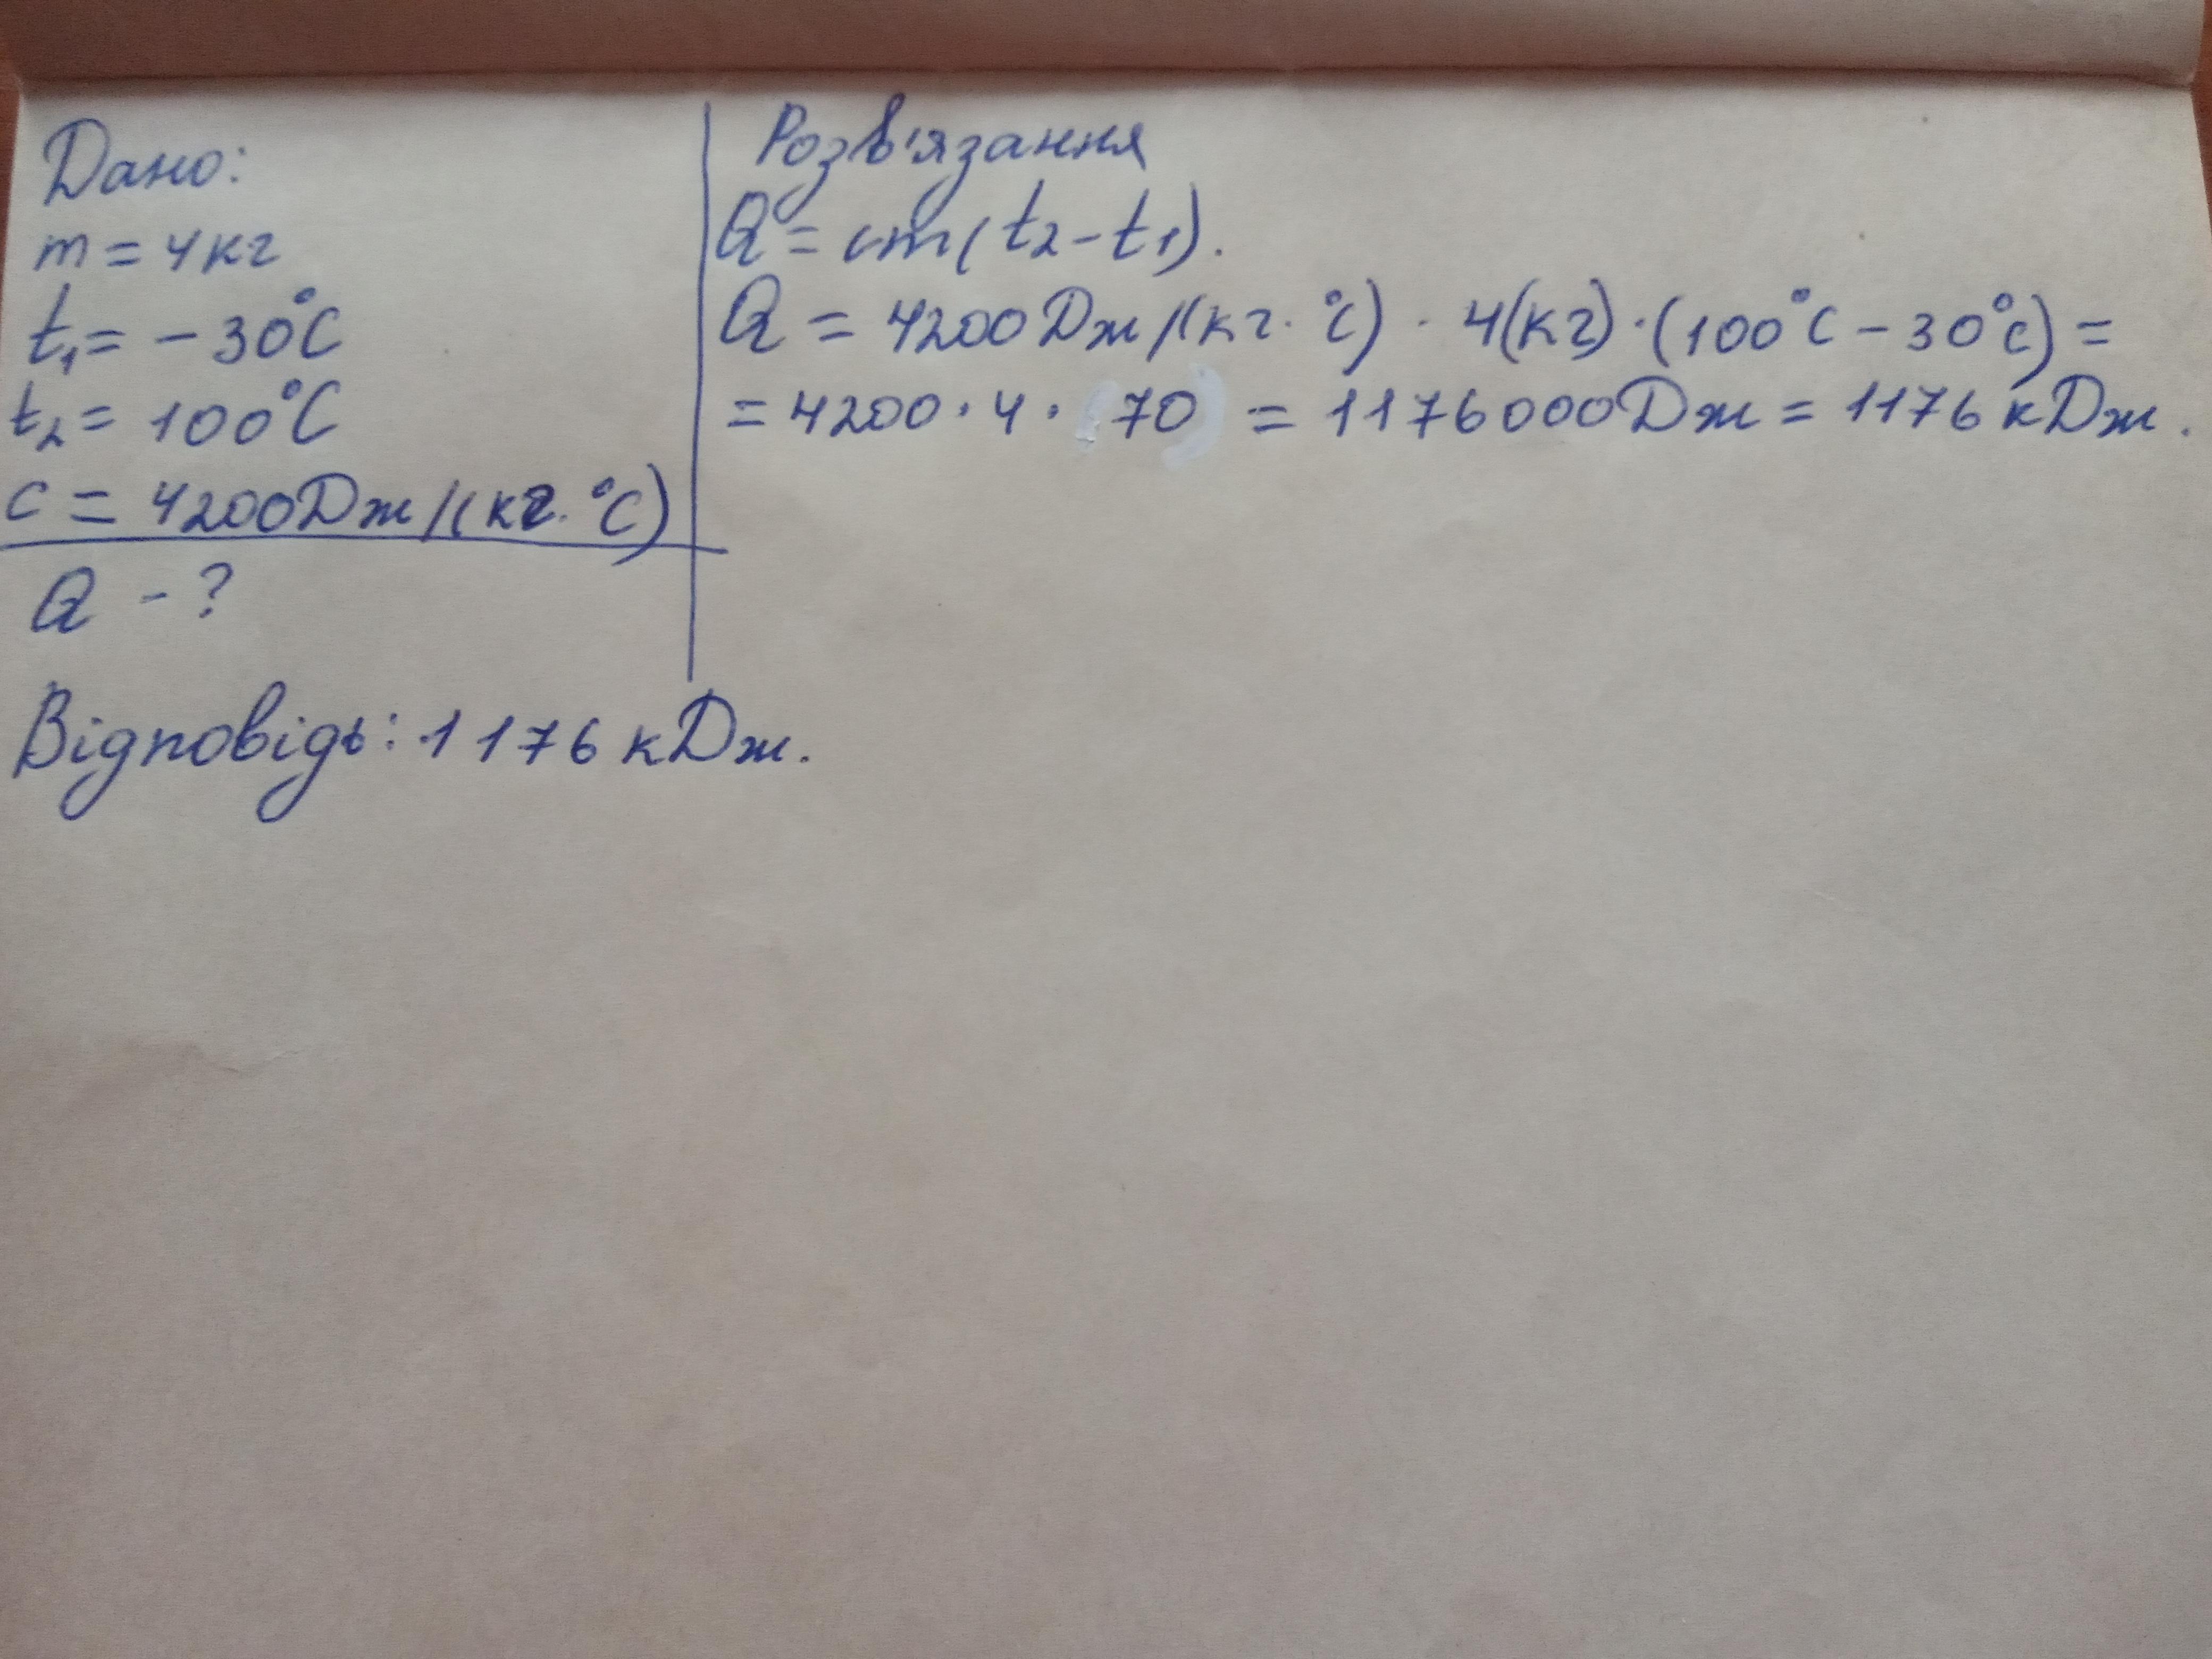 Дано:
m = 4кг
t₁ = - 30°C
t₂ = 100°C
c = 4200Дж/(кг·°C)
Q - ?
Розв'язання
Q = cm(t₂-t₁).
Q = 4200Дж/(кг·°C) · 4(кг)·(100°C - 30°C) =
= 4200·4·(70) = 1176000Дж = 1176 кДж.
Відповідь: 1176 кДж.